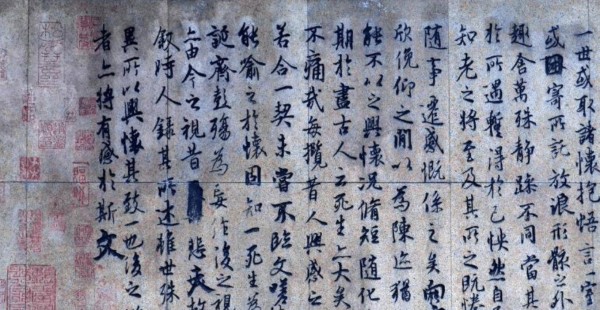 一世或取諸懷抱悟言一室
或因寄所託放浪形骸之外
趣舍萬殊靜躁不同當其
於所遇暫得於己怏然自
知老之將至及其所之既惓
隨事遷感慨係之矣向
欣俛仰之閒以為陳迹猶
能不以之興懷況脩短隨化
期於盡古人云死生亦大矣
不痛哉每攬昔人興感之
若合一契未嘗不臨文嗟
能喻之於懷固知一死生為
誕齊彭殤為妄作後之視
亦由今之視昔 悲夫故
敘時人錄其所述雖世殊
異所以興懷其致一也後之
者亦將有感於斯文